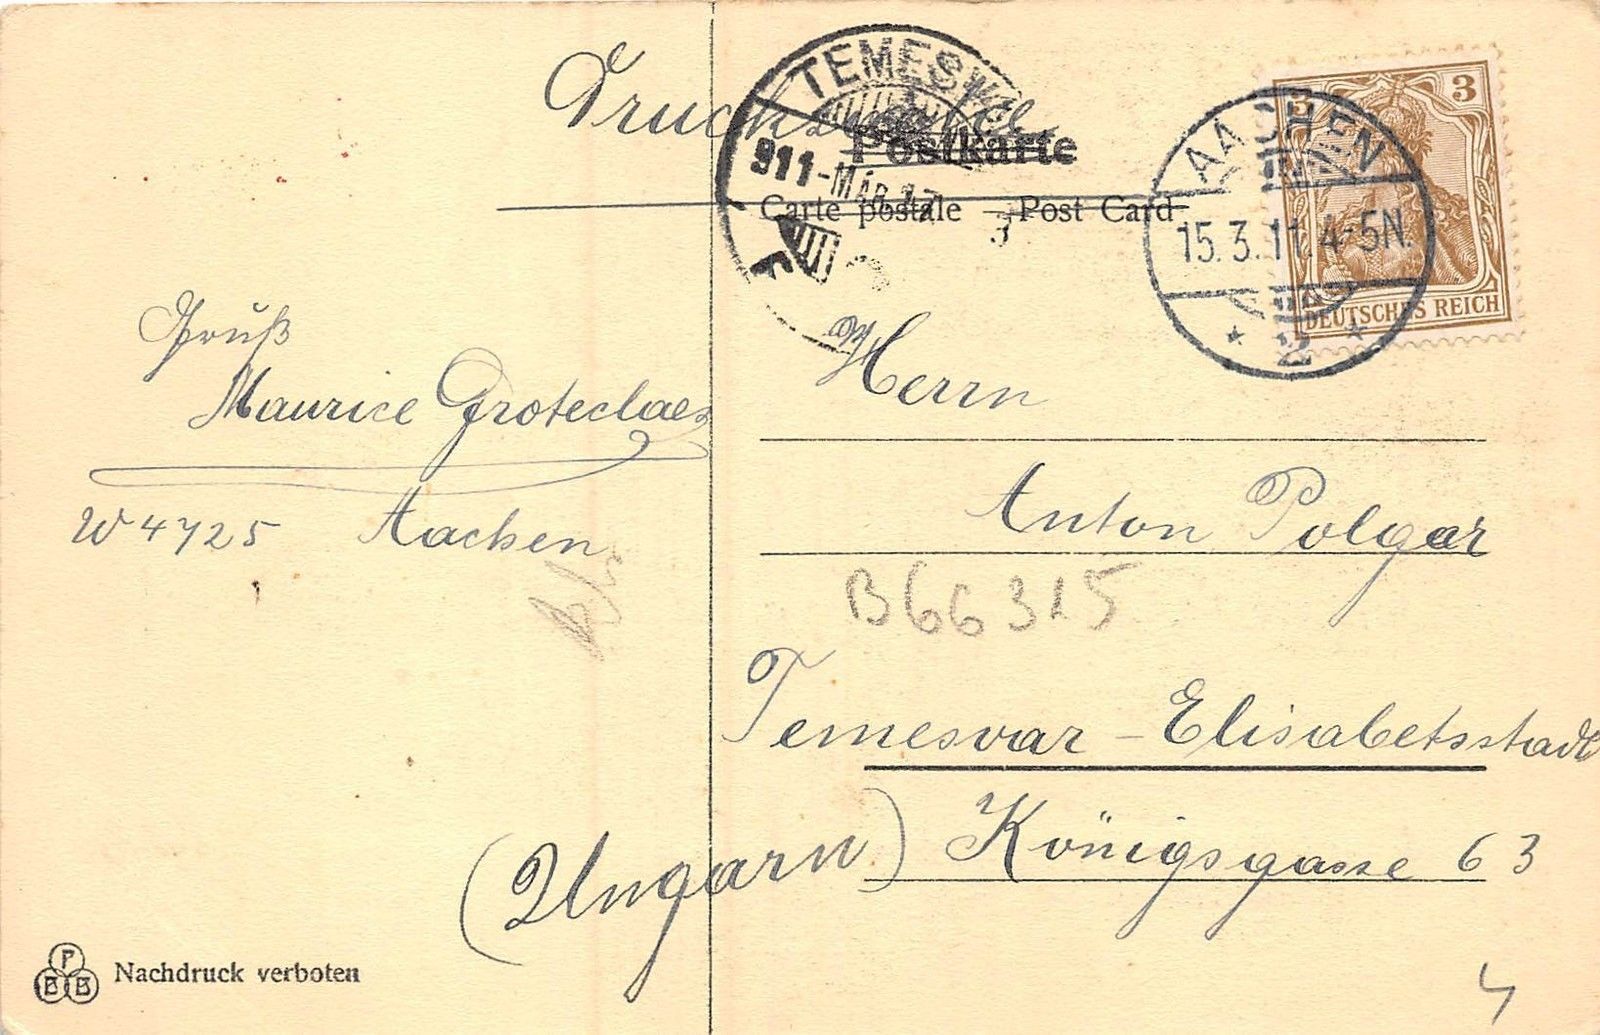 Drucksache
Postkarte
Carte postale Post Card
TEMESV
911-MÁR.17
3
3
DEUTSCHES REICH
AACHEN
15.3.11.4-5N.
* 2 *
Gruß
Maurice Groteclaes
W 4725 Aachen
Herrn
Anton Polgar
B66315
Temesvar - Elisabetsstadt
(Ungarn) Königsgasse 63
P
B B
Nachdruck verboten